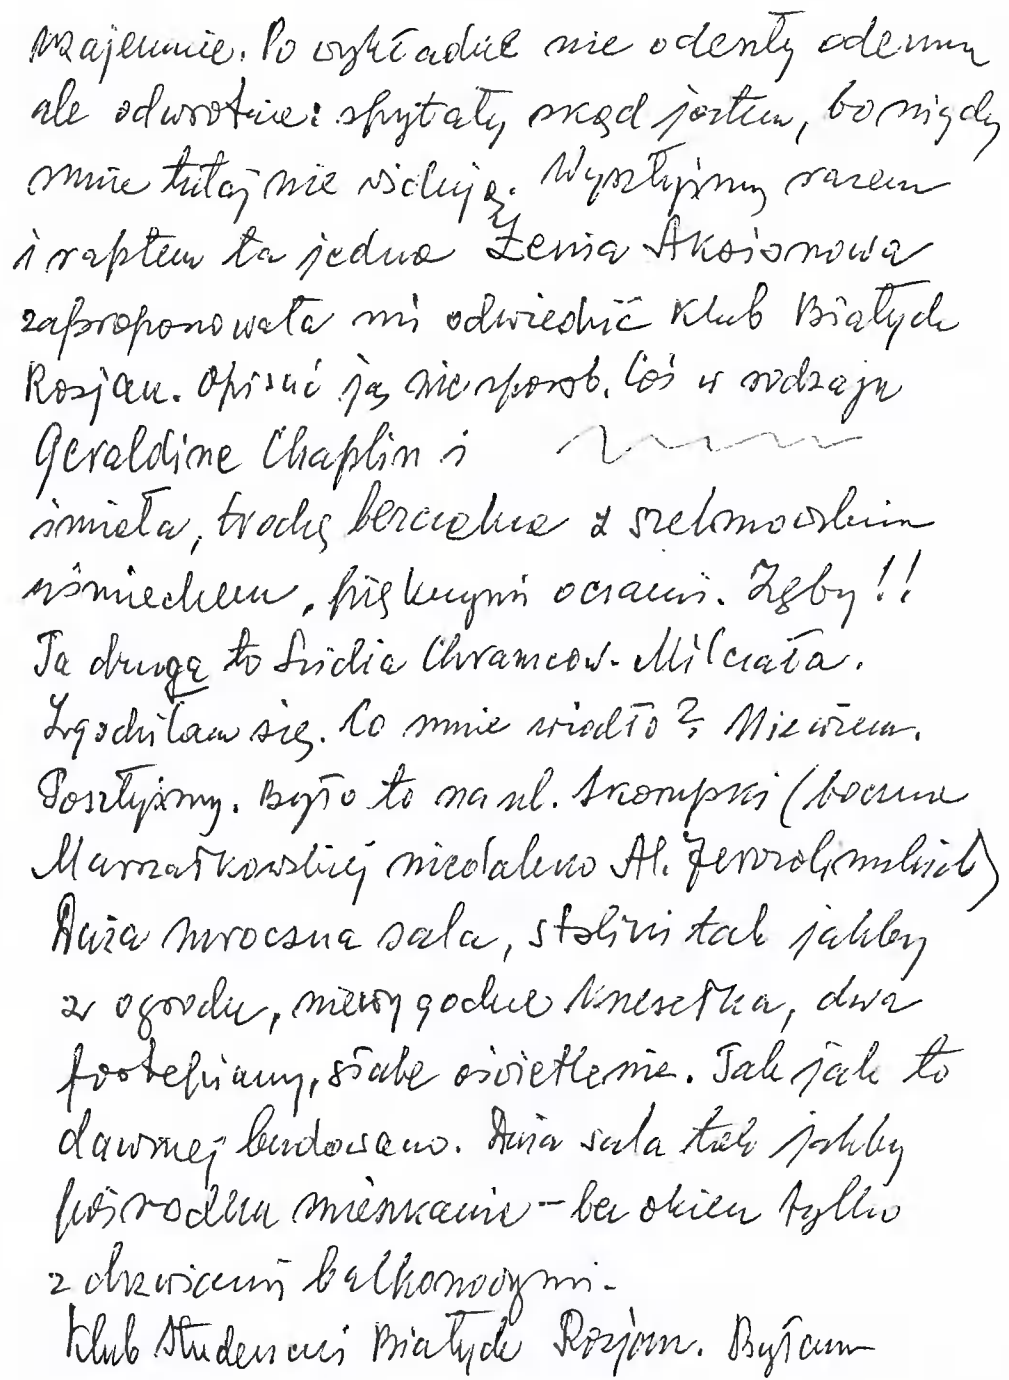 wzajemnie. Po wykładzie nie odeszły odemnie
ale odwrotnie: spytały skąd jestem, bo nigdy
mnie tutaj nie widują. Wyszłyśmy razem
i raptem ta jedna Żenia Aksionowa
zaproponowała mi odwiedzić Klub Białych
Rosjan. Opisać ją niesposób. Coś w rodzaju
Geraldine Chaplin i
śmiała, trochę bezczelna z szelmowskim
uśmiechem, pięknymi oczami. Zęby!!
Ta druga to Lidia Chramcow-Milczała.
Zgodziłam się. Co mnie wiodło? Nie wiem.
Poszłyśmy. Było to na ul. Skorupki (boczna
Marszałkowskiej niedaleko Al. Jerozolimskich)
Duża mroczna sala, stoliki tak jakby
z ogrodu, niewygodne krzesełka, dwa
fortepiany, słabe oświetlenie. Tak jak to
dawniej budowano. Duża sala tak jakby
pośrodku mieszkanie - bez okien tylko
z drzwiami balkonowymi.
Klub Studencki Białych Rosjan. Byłam